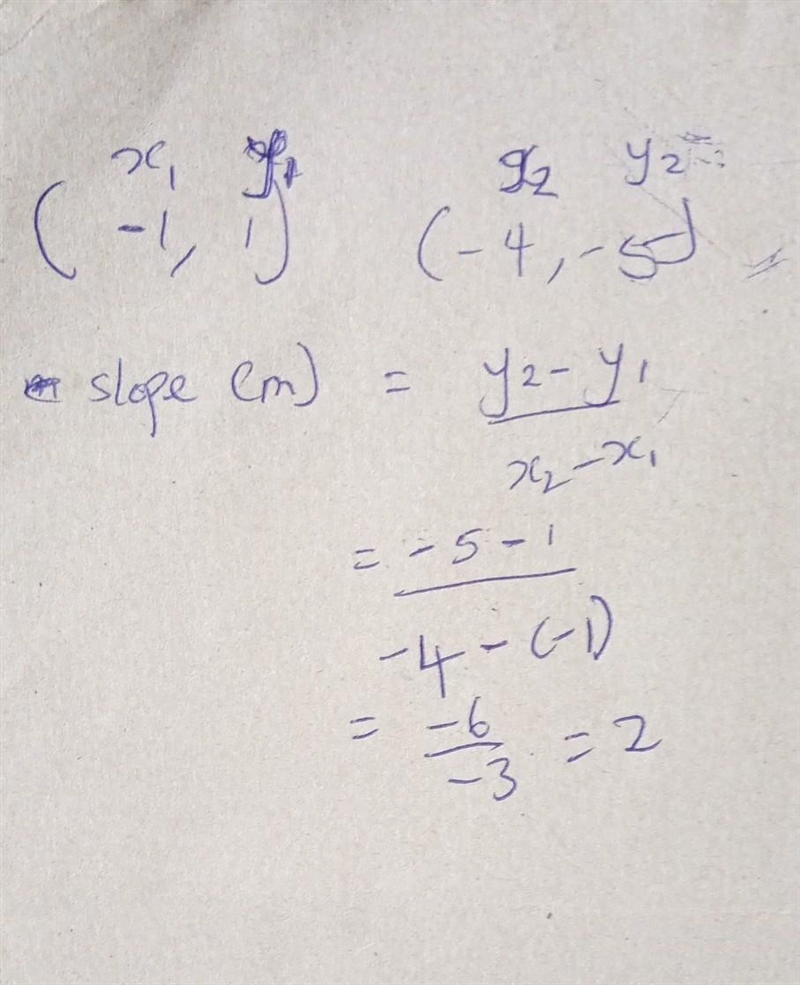 x₁ y₁ x₂ y₂
(-1, 1) (-4, -5)
slope (m) = y₂ - y₁ / x₂ - x₁
= -5 - 1 / -4 - (-1)
= -6 / -3 = 2